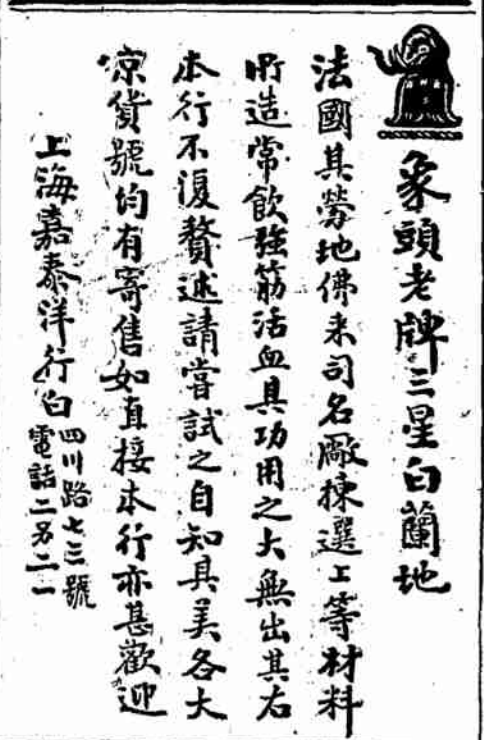 象頭老牌三星白蘭地
法國其勞地佛来司名廠揀選上等材料
所造常飲強筋活血具功用之大無出其右
本行不復贅述請嘗試之自知其美各大
京貨號均有寄售如直接本行亦甚歡迎
上海嘉泰洋行白
四川路七三號
電話二另二一